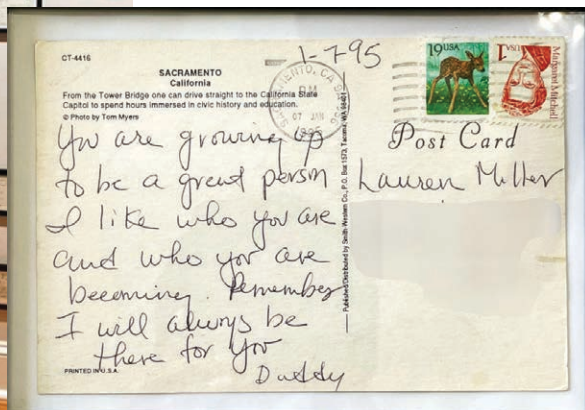 CT-4416
SACRAMENTO
California
From the Tower Bridge one can drive straight to the California State
Capitol to spend hours immersed in civic history and education.
© Photo by Tom Myers
1-7-95
SACRAMENTO, CA
PM
07 JAN
1995
19USA
1USA
Margaret Mitchell
Post Card
You are growing up
to be a great person
I like who you are
and who you are
becoming. Remember
I will always be
there for you
Daddy
Lauren Miller
Published/Distributed by Smith-Western Co., P.O. Box 1573, Tacoma, WA 98401
PRINTED IN U.S.A.